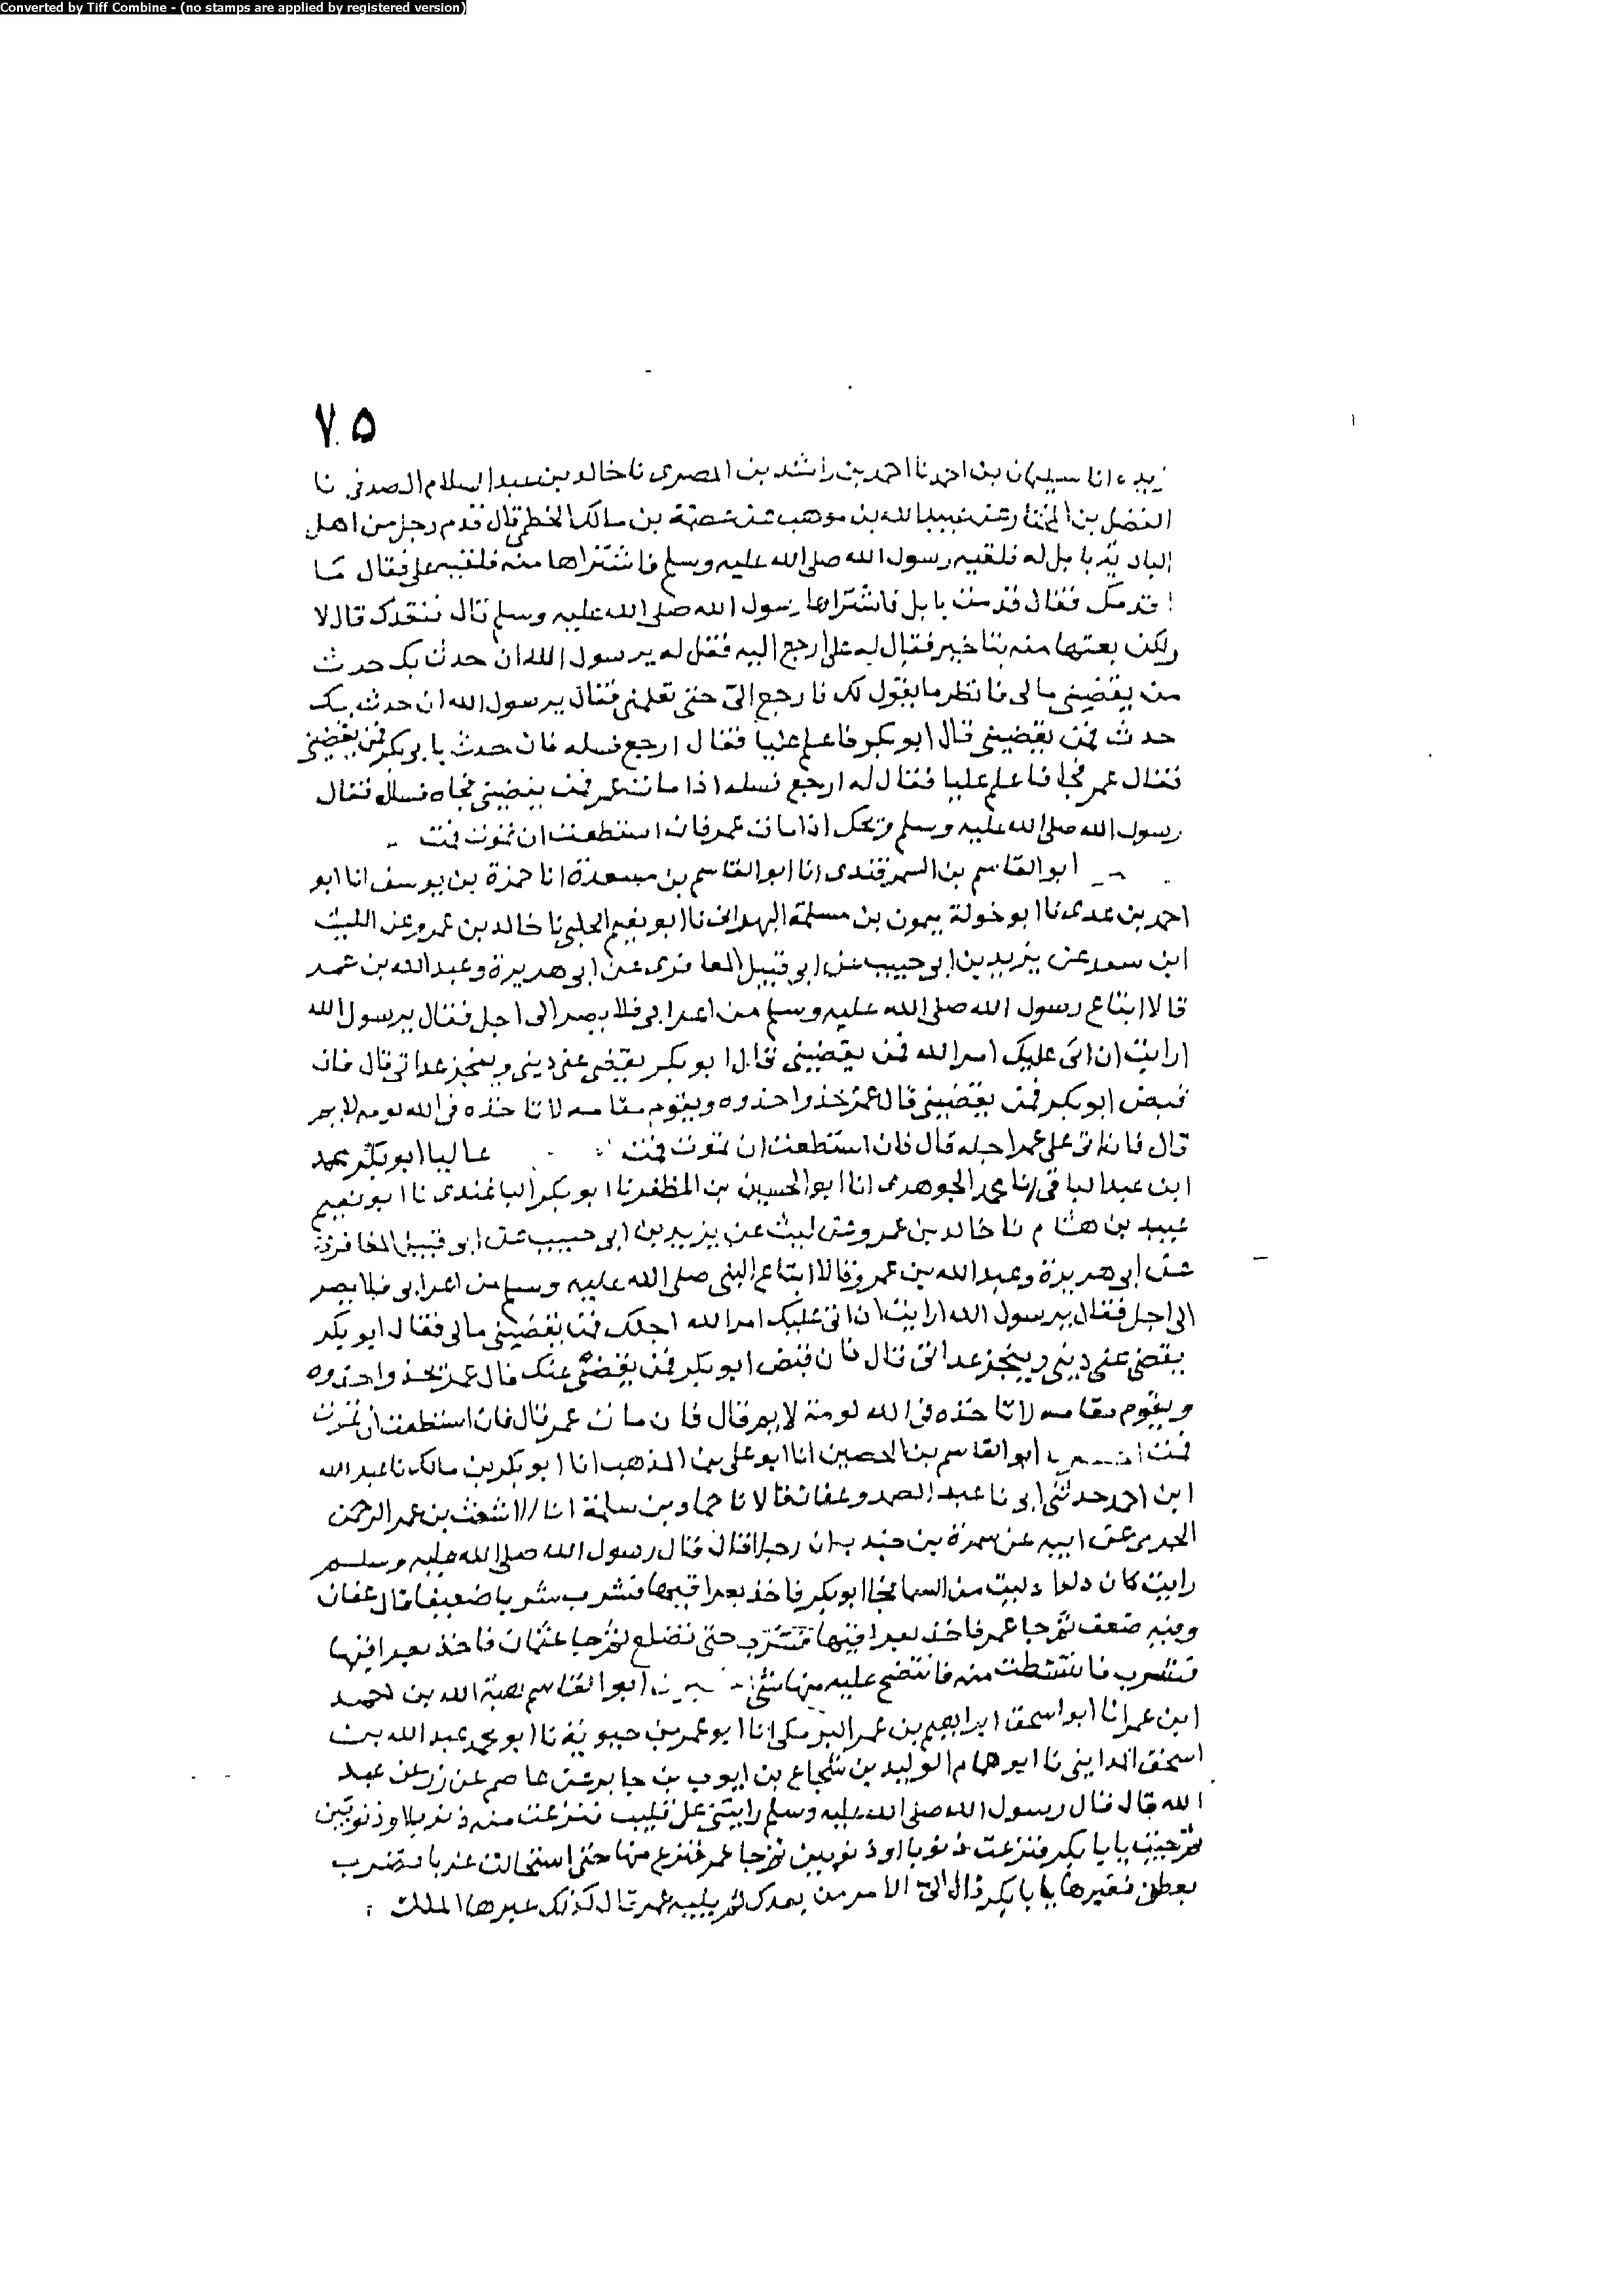 Converted by Tiff Combine - (no stamps are applied by registered version)
٧٠٥
انا سليمان بن احمد نا احمد بن راشد بن المصرى نا خالد بن عبد السلام الصدفى نا
الفضل بن المختار عن عبيد الله بن موهب عن عصمة بن مالك الخطمى قال قدم رجل من اهل
البادية بابل له فلقيه رسول الله صلى الله عليه وسلم فاشتراها منه فلقيه على فقال ما
اقدمك فقال قدمت بابل فاشتراها رسول الله صلى الله عليه وسلم قال فنقدك قال لا
ولكن بعتها منه بتاخير فقال له على ارجع اليه فقل له يرسول الله ان حدث بك حدث
من يقضينى مالى فانظر ما يقول لك فارجع الى حتى تعلمنى فقال يرسول الله ان حدث بك
حدث فمن يقضينى قال ابو بكر فاعلم عليا فقال ارجع فسله فان حدث بابى بكر فمن يقضينى
فقال عمر فجا فاعلم عليا فقال له ارجع فسله اذا مات عمر فمن يقضينى فجاه فساله فقال
رسول الله صلى الله عليه وسلم ويحك اذا مات عمر فان استطعت ان تموت فمت
ابو القاسم بن السمرقندى انا ابو القاسم بن مسعدة انا حمزة بن يوسف انا ابو
احمد بن عدى نا ابو خولة ميمون بن مسلمة البهرانى نا ابو نعيم الحلبى نا خالد بن عمرو عن الليث
ابن سعد عن يزيد بن ابى حبيب عن ابى قبيل المعافرى عن ابى هريرة وعبد الله بن عمر
قالا ابتاع رسول الله صلى الله عليه وسلم من اعرابى قلايص الى اجل فقال يرسول الله
ارايت ان اتى عليك امر الله فمن يقضينى قال ابو بكر يقضى عنى دينى وينجز عداتى قال فان
قبض ابو بكر فمن يقضينى قال عمر يحذوا حذوه ويقوم مقامه لا تاخذه فى الله لومه لايم
قال فان اتى على عمر اجله قال فان استطعت ان تموت فمت عاليا ابو بكر محمد
ابن عبد الباقى انا الجوهرى انا ابو الحسين بن المظفر نا ابو بكر الباغندى نا ابو نعيم
عبيد بن هشام نا خالد بن عمرو عن ليث عن يزيد بن ابى حبيب عن ابو قبيل المعافرى
عن ابى هريرة وعبد الله بن عمرو قالا ابتاع النبى صلى الله عليه وسلم من اعرابى قلايص
الى اجل فقال يرسول الله ارايت ان اتى عليك امر الله اجلك فمن يقضينى مالى فقال ابو بكر
يقضى عنى دينى وينجز عداتى قال فان قبض ابو بكر فمن يقضى عنك قال عمر يحذوا حذوه
ويقوم مقامه لا تاخذه فى الله لومة لايم قال فان مات عمر قال فان استطعت ان تموت
فمت ابو القاسم بن الحصين انا ابو على بن المذهب انا ابو بكر بن مالك نا عبد الله
ابن احمد حدثنى ابى نا عبد الصمد وعفان قالا نا حماد بن سلمة انا الاشعث بن عبد الرحمن
الجرمى عن ابيه عن سمرة بن جندب ان رجلا قال قال رسول الله صلى الله عليه وسلم
رايت كان دلوا دليت من السما فجا ابو بكر فاخذ بعراقيها فشرب شربا ضعيفا قال عفان
وفيه ضعف ثم جا عمر فاخذ بعراقيها فشرب حتى تضلع ثم جا عثمان فاخذ بعراقيها
فشرب فانتشطت منه فانتضح عليه منها شئ ابو القاسم هبة الله بن احمد
ابن عمر انا ابو اسحق ابراهيم بن عمر البرمكى انا ابو عمر بن حيويه نا ابو محمد عبد الله بن
اسحق المداينى نا ابو همام الوليد بن شجاع بن ايوب بن جابر عن عاصم عن زر عن عبد
الله قال قال رسول الله صلى الله عليه وسلم رايتنى على قليب فنزعت منه ذنوبا او ذنوبين
ثم جيت يا با بكر فنزعت ذنوبا او ذنوبين ثم جا عمر فنزع منها حتى استحالت غربا فضرب
بعطن فعبرها يا با بكر قال الى الامر من بعدك ثم يليه عمر قال كذلك عبرها الملك